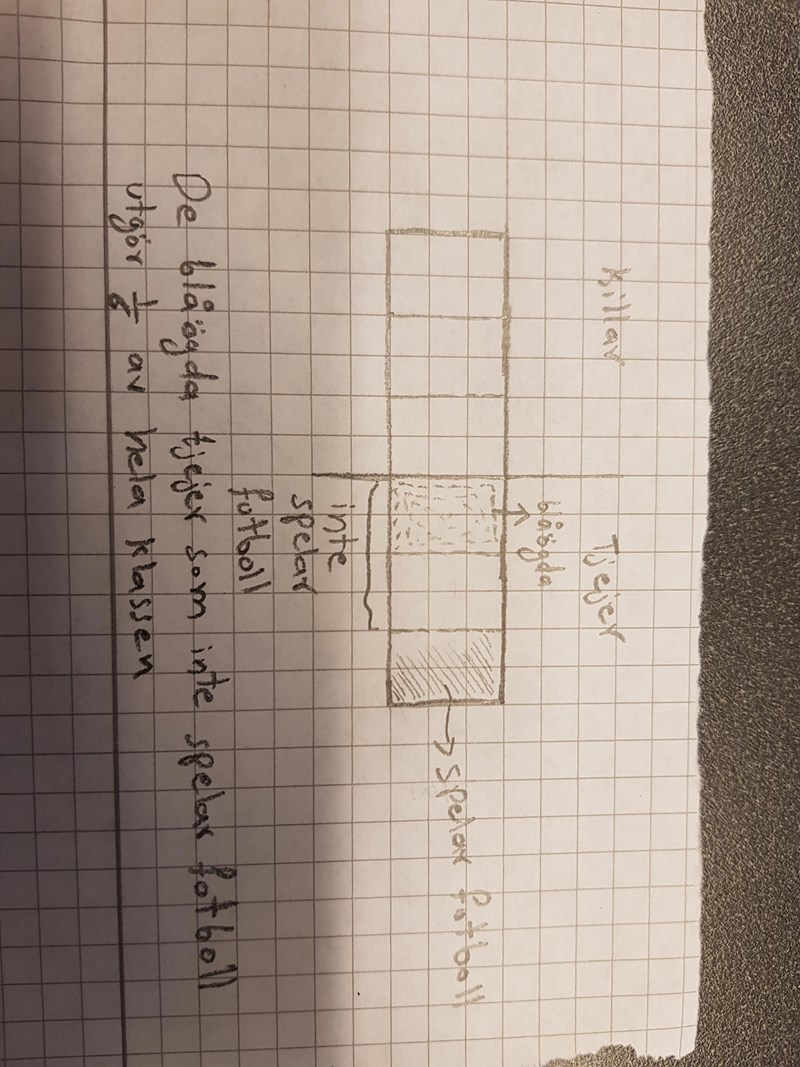 Killar
Tjejer
blåögda
→ spelar fotboll
inte
spelar
fotboll
De blåögda tjejer som inte spelar fotboll
utgör 1/6 av hela klassen